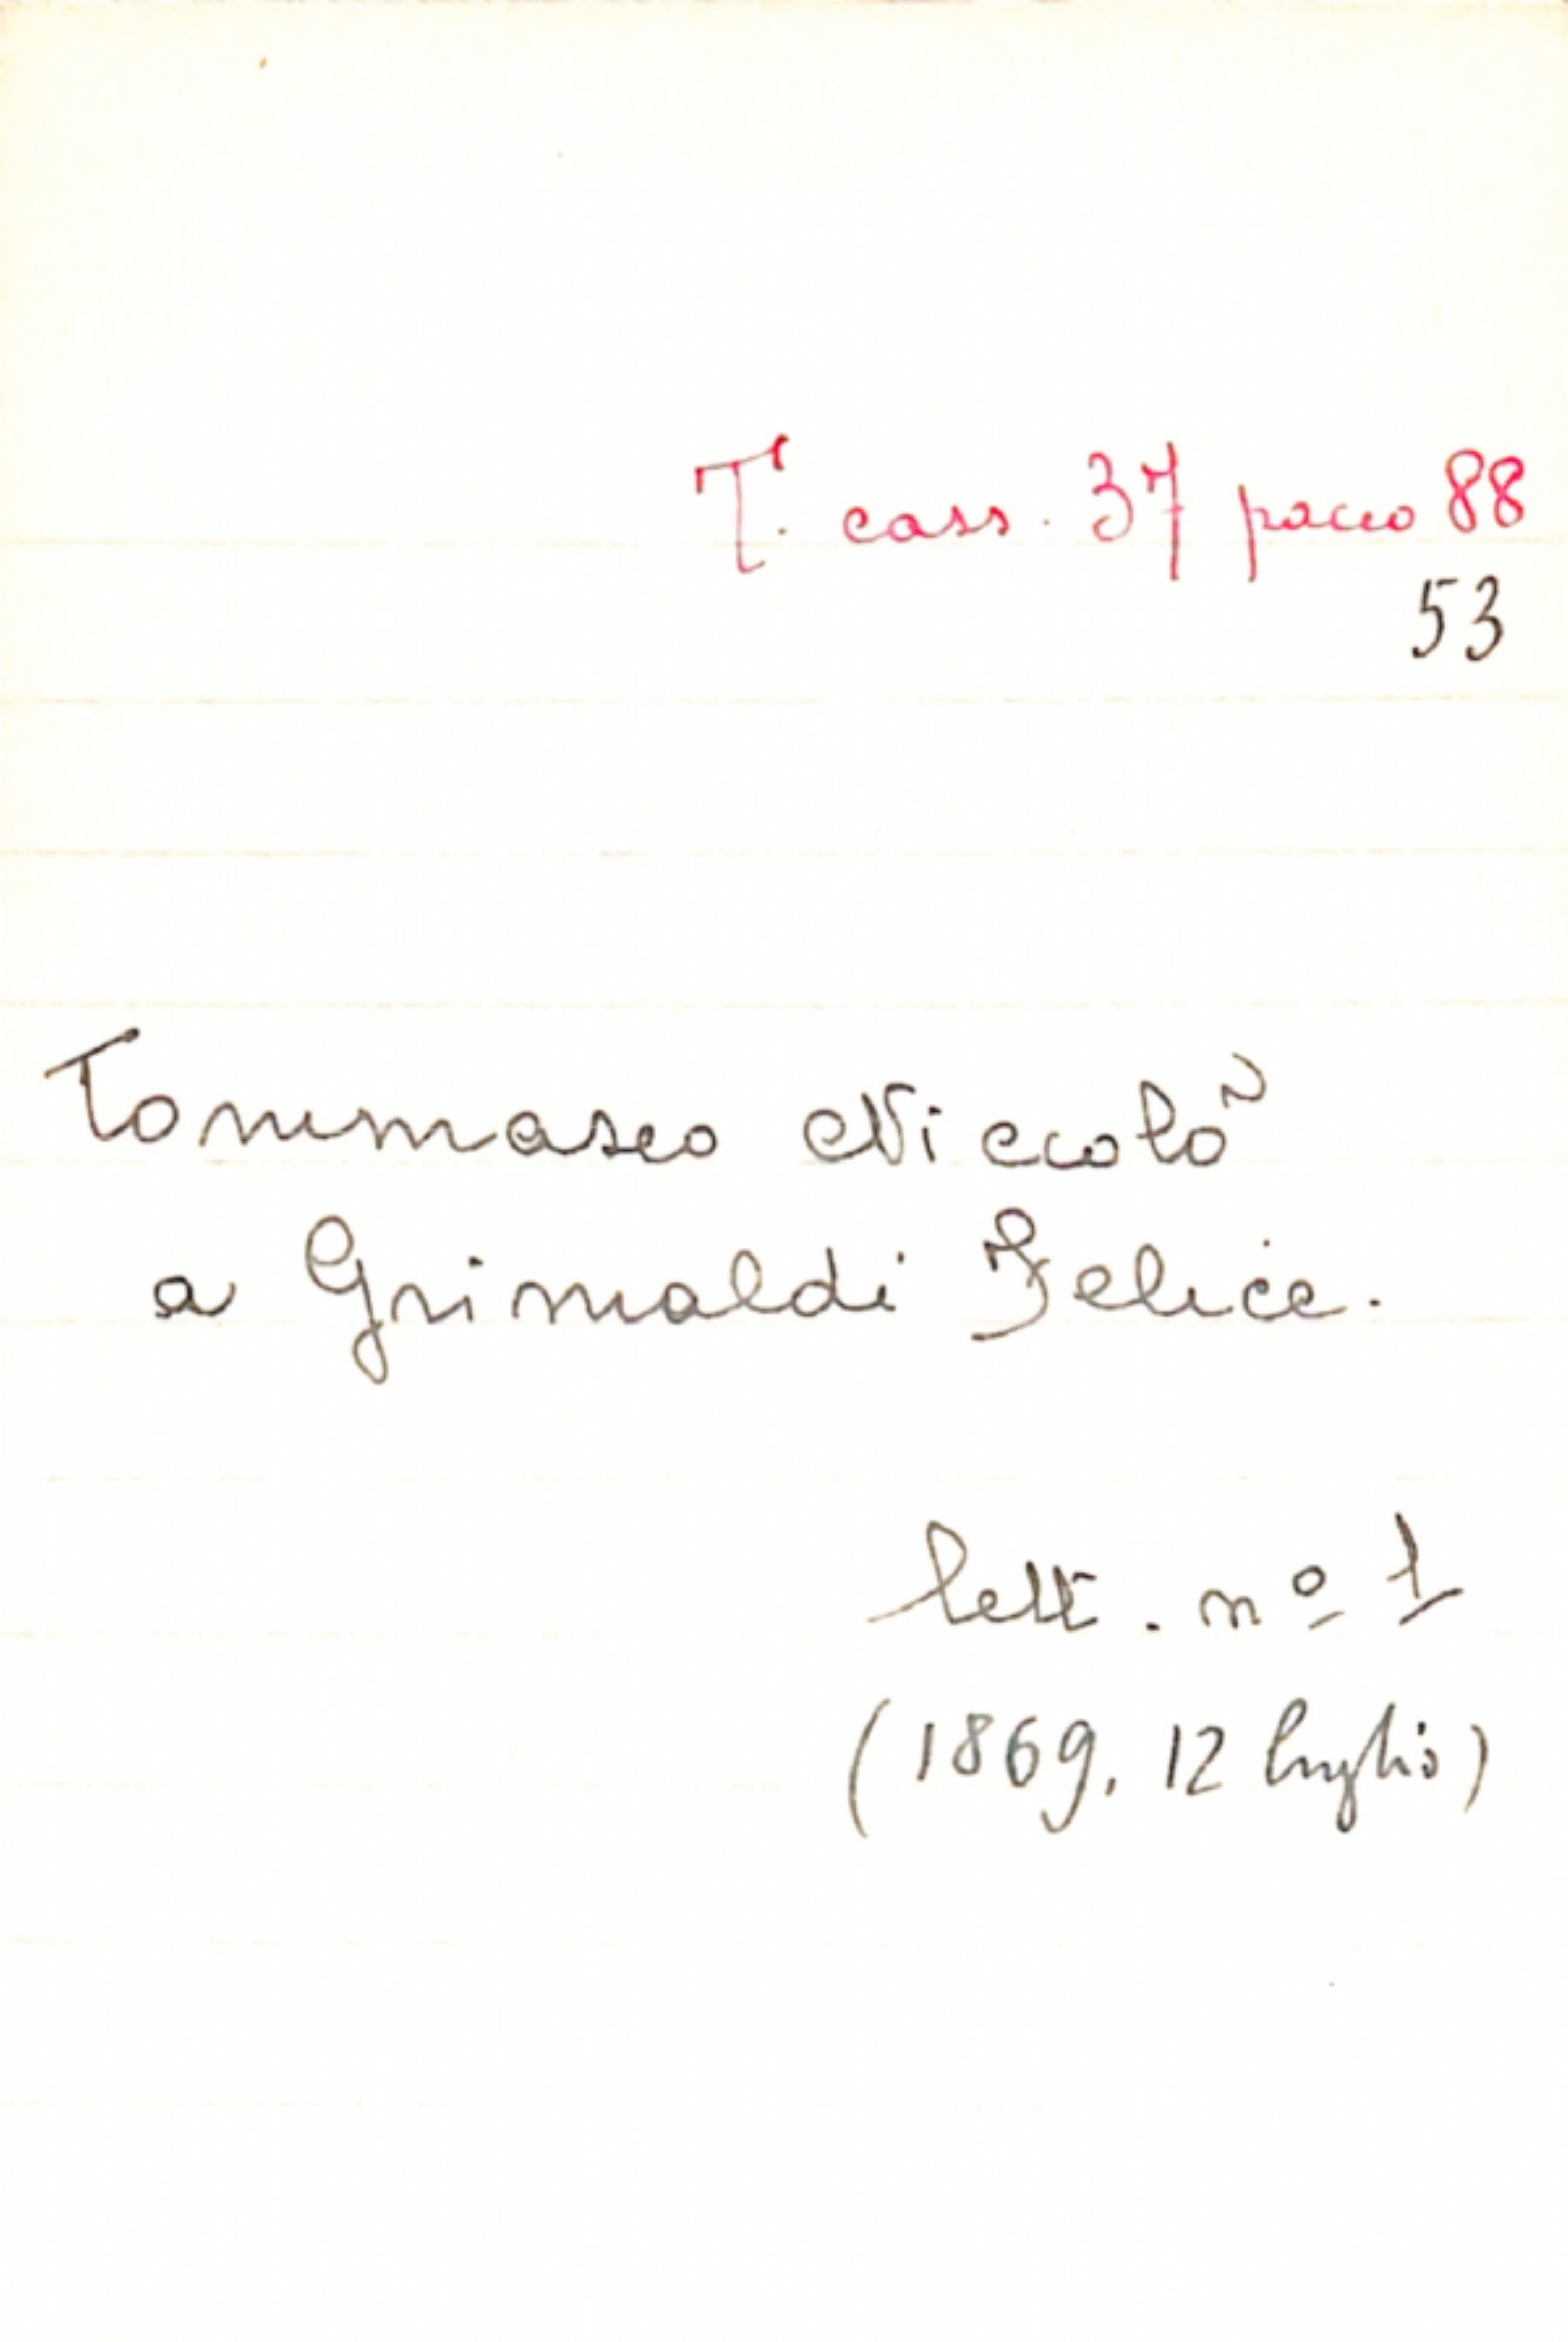 T. cass. 37 pacco 88
53
Tommaseo Niccolò
a Grimaldi Felice.
lett. nº 1
(1869, 12 luglio)